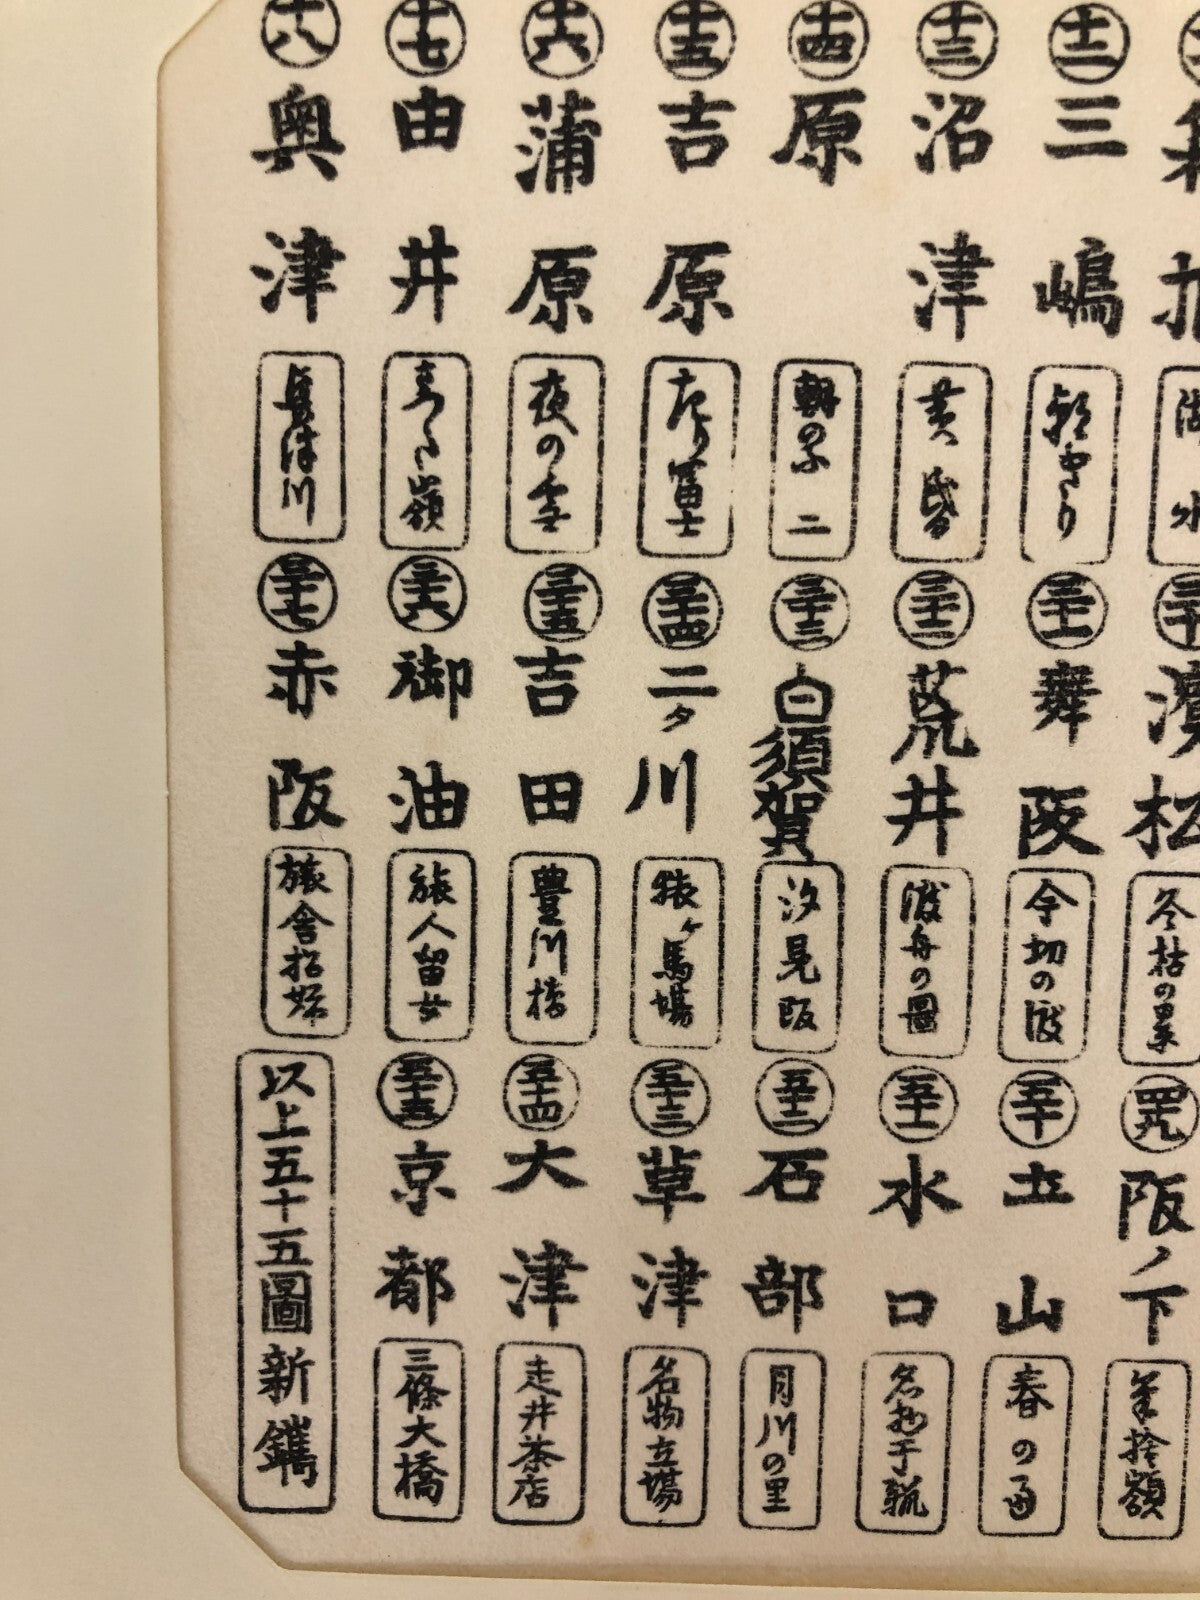 十二 三嶋 朝きり
十三 沼津 黄昏
十四 原 朝の不二
十五 吉原 左り富士
十六 蒲原 夜の雪
十七 由井 さつた嶺
十八 奥津 興津川
三十 濱松 冬枯の景
三十一 舞阪 今切の渡
三十二 荒井 渡舟の圖
三十三 白須賀 汐見阪
三十四 二タ川 猿ヶ馬場
三十五 吉田 豊川橋
三十六 御油 旅人留女
三十七 赤阪 旅舎招婦
四十九 阪ノ下 筆捨嶺
五十 土山 春の雨
五十一 水口 名物干瓢
五十二 石部 目川の里
五十三 草津 名物立場
五十四 大津 走井茶店
五十五 京都 三條大橋
以上五十五圖新鐫